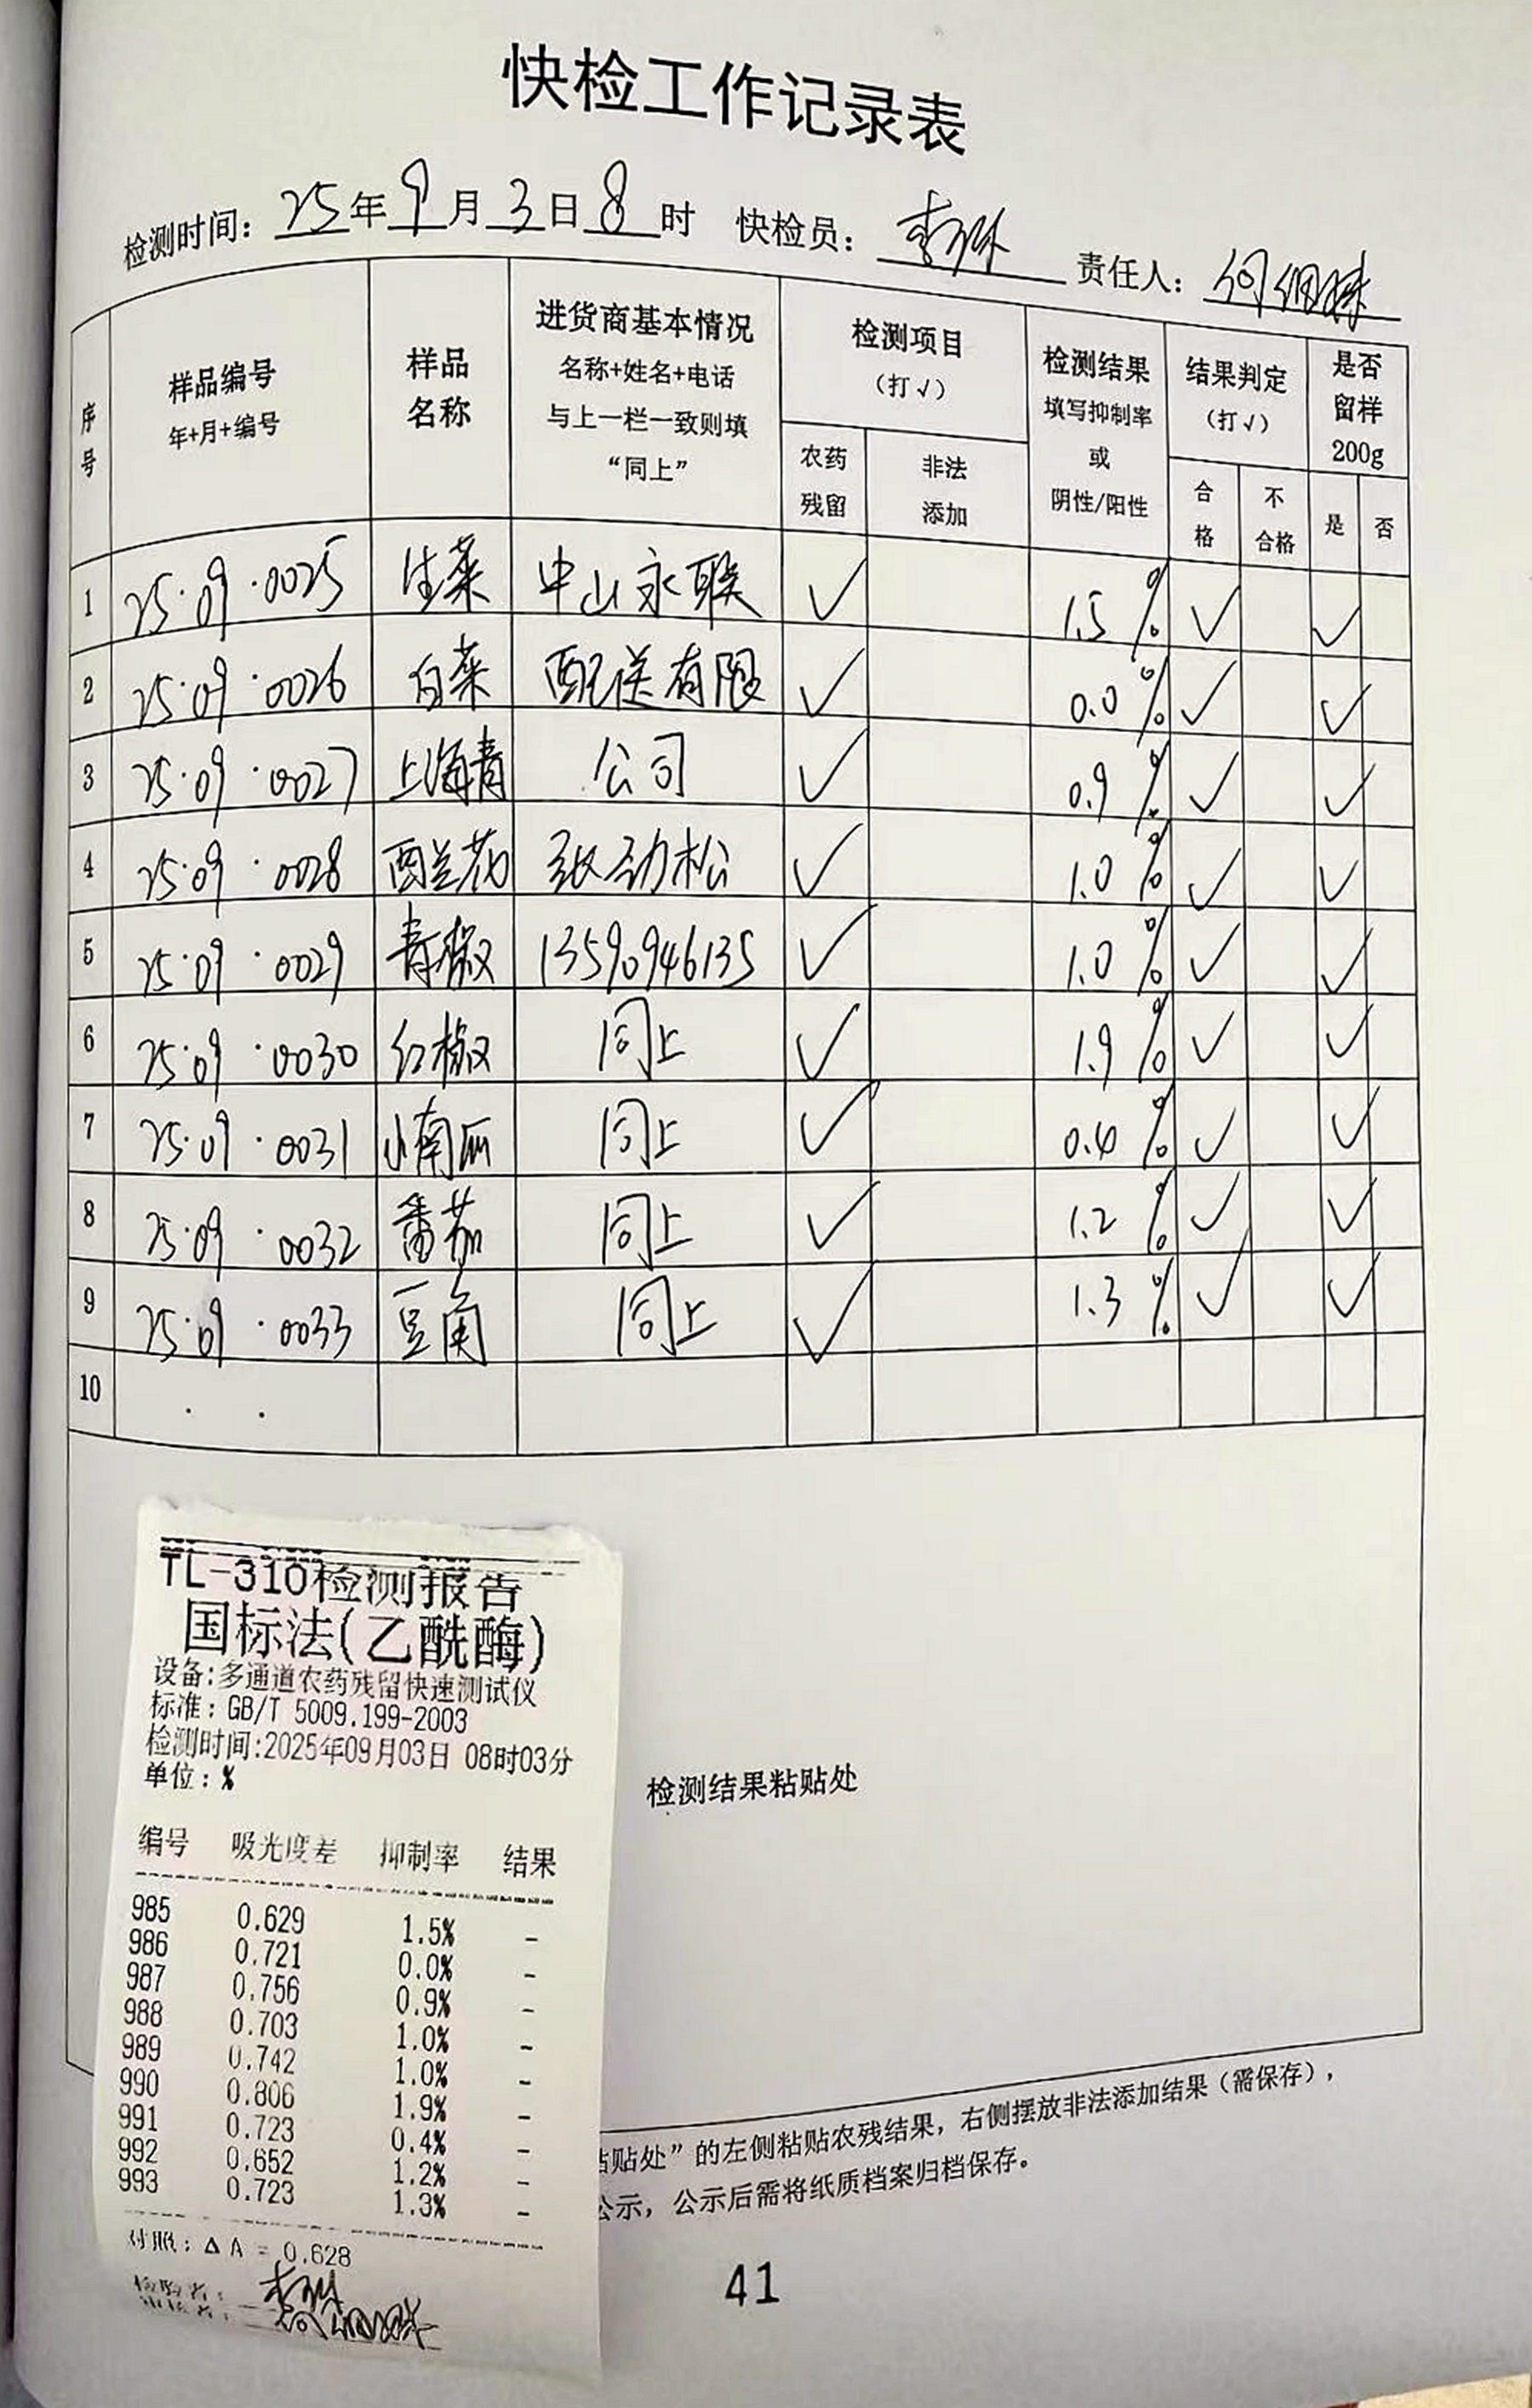 快检工作记录表
检测时间：25年9月3日8时 快检员： 责任人：
序号 样品编号 年+月+编号 样品名称 进货商基本情况 名称+姓名+电话 与上一栏一致则填“同上” 检测项目（打√） 农药残留 非法添加 检测结果 填写抑制率或阴性/阳性 结果判定（打√） 合格 不合格 是否留样200g 是 否
1 25·09·0025 生菜 中山永联 √ 1.5% √ √
2 25·09·0026 白菜 配送有限 √ 0.0% √ √
3 25·09·0027 上海青 公司 √ 0.9% √ √
4 25·09·0028 西兰花 张劲松 √ 1.0% √ √
5 25·09·0029 青椒 13590946135 √ 1.0% √ √
6 25·09·0030 红椒 同上 √ 1.9% √ √
7 25·09·0031 小南瓜 同上 √ 0.4% √ √
8 25·09·0032 番茄 同上 √ 1.2% √ √
9 25·09·0033 豆角 同上 √ 1.3% √ √
10 · ·
TL-310检测报告
国标法(乙酰酶)
设备:多通道农药残留快速测试仪
标准：GB/T 5009.199-2003
检测时间:2025年09月03日 08时03分
单位：%
编号 吸光度差 抑制率 结果
985 0.629 1.5% -
986 0.721 0.0% -
987 0.756 0.9% -
988 0.703 1.0% -
989 0.742 1.0% -
990 0.806 1.9% -
991 0.723 0.4% -
992 0.652 1.2% -
993 0.723 1.3% -
对照：ΔA = 0.628
检验者：
审核者：
检测结果粘贴处
粘贴处”的左侧粘贴农残结果，右侧摆放非法添加结果（需保存），
公示，公示后需将纸质档案归档保存。
41